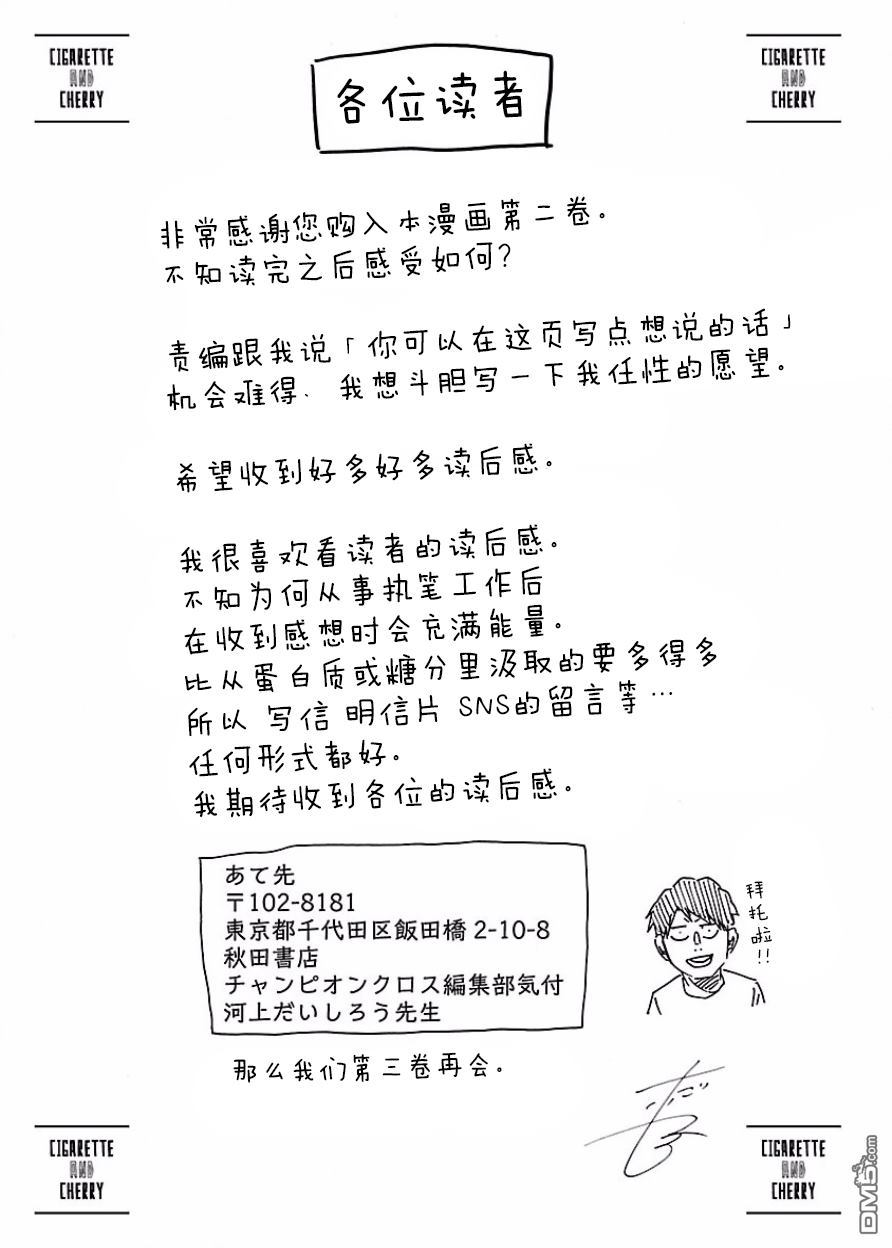 CIGARETTE
AND
CHERRY
CIGARETTE
AND
CHERRY
各位读者
非常感谢您购入本漫画第二卷。
不知读完之后感受如何？
责编跟我说「你可以在这页写点想说的话」
机会难得、我想斗胆写一下我任性的愿望。
希望收到好多好多读后感。
我很喜欢看读者的读后感。
不知为何从事执笔工作后
在收到感想时会充满能量。
比从蛋白质或糖分里汲取的要多得多
所以 写信 明信片 SNS的留言等…
任何形式都好。
我期待收到各位的读后感。
あて先
〒102-8181
東京都千代田区飯田橋 2-10-8
秋田書店
チャンピオンクロス編集部気付
河上だいしろう先生
拜托啦!!
那么我们第三卷再会。
CIGARETTE
AND
CHERRY
CIGARETTE
AND
CHERRY
DM5.com